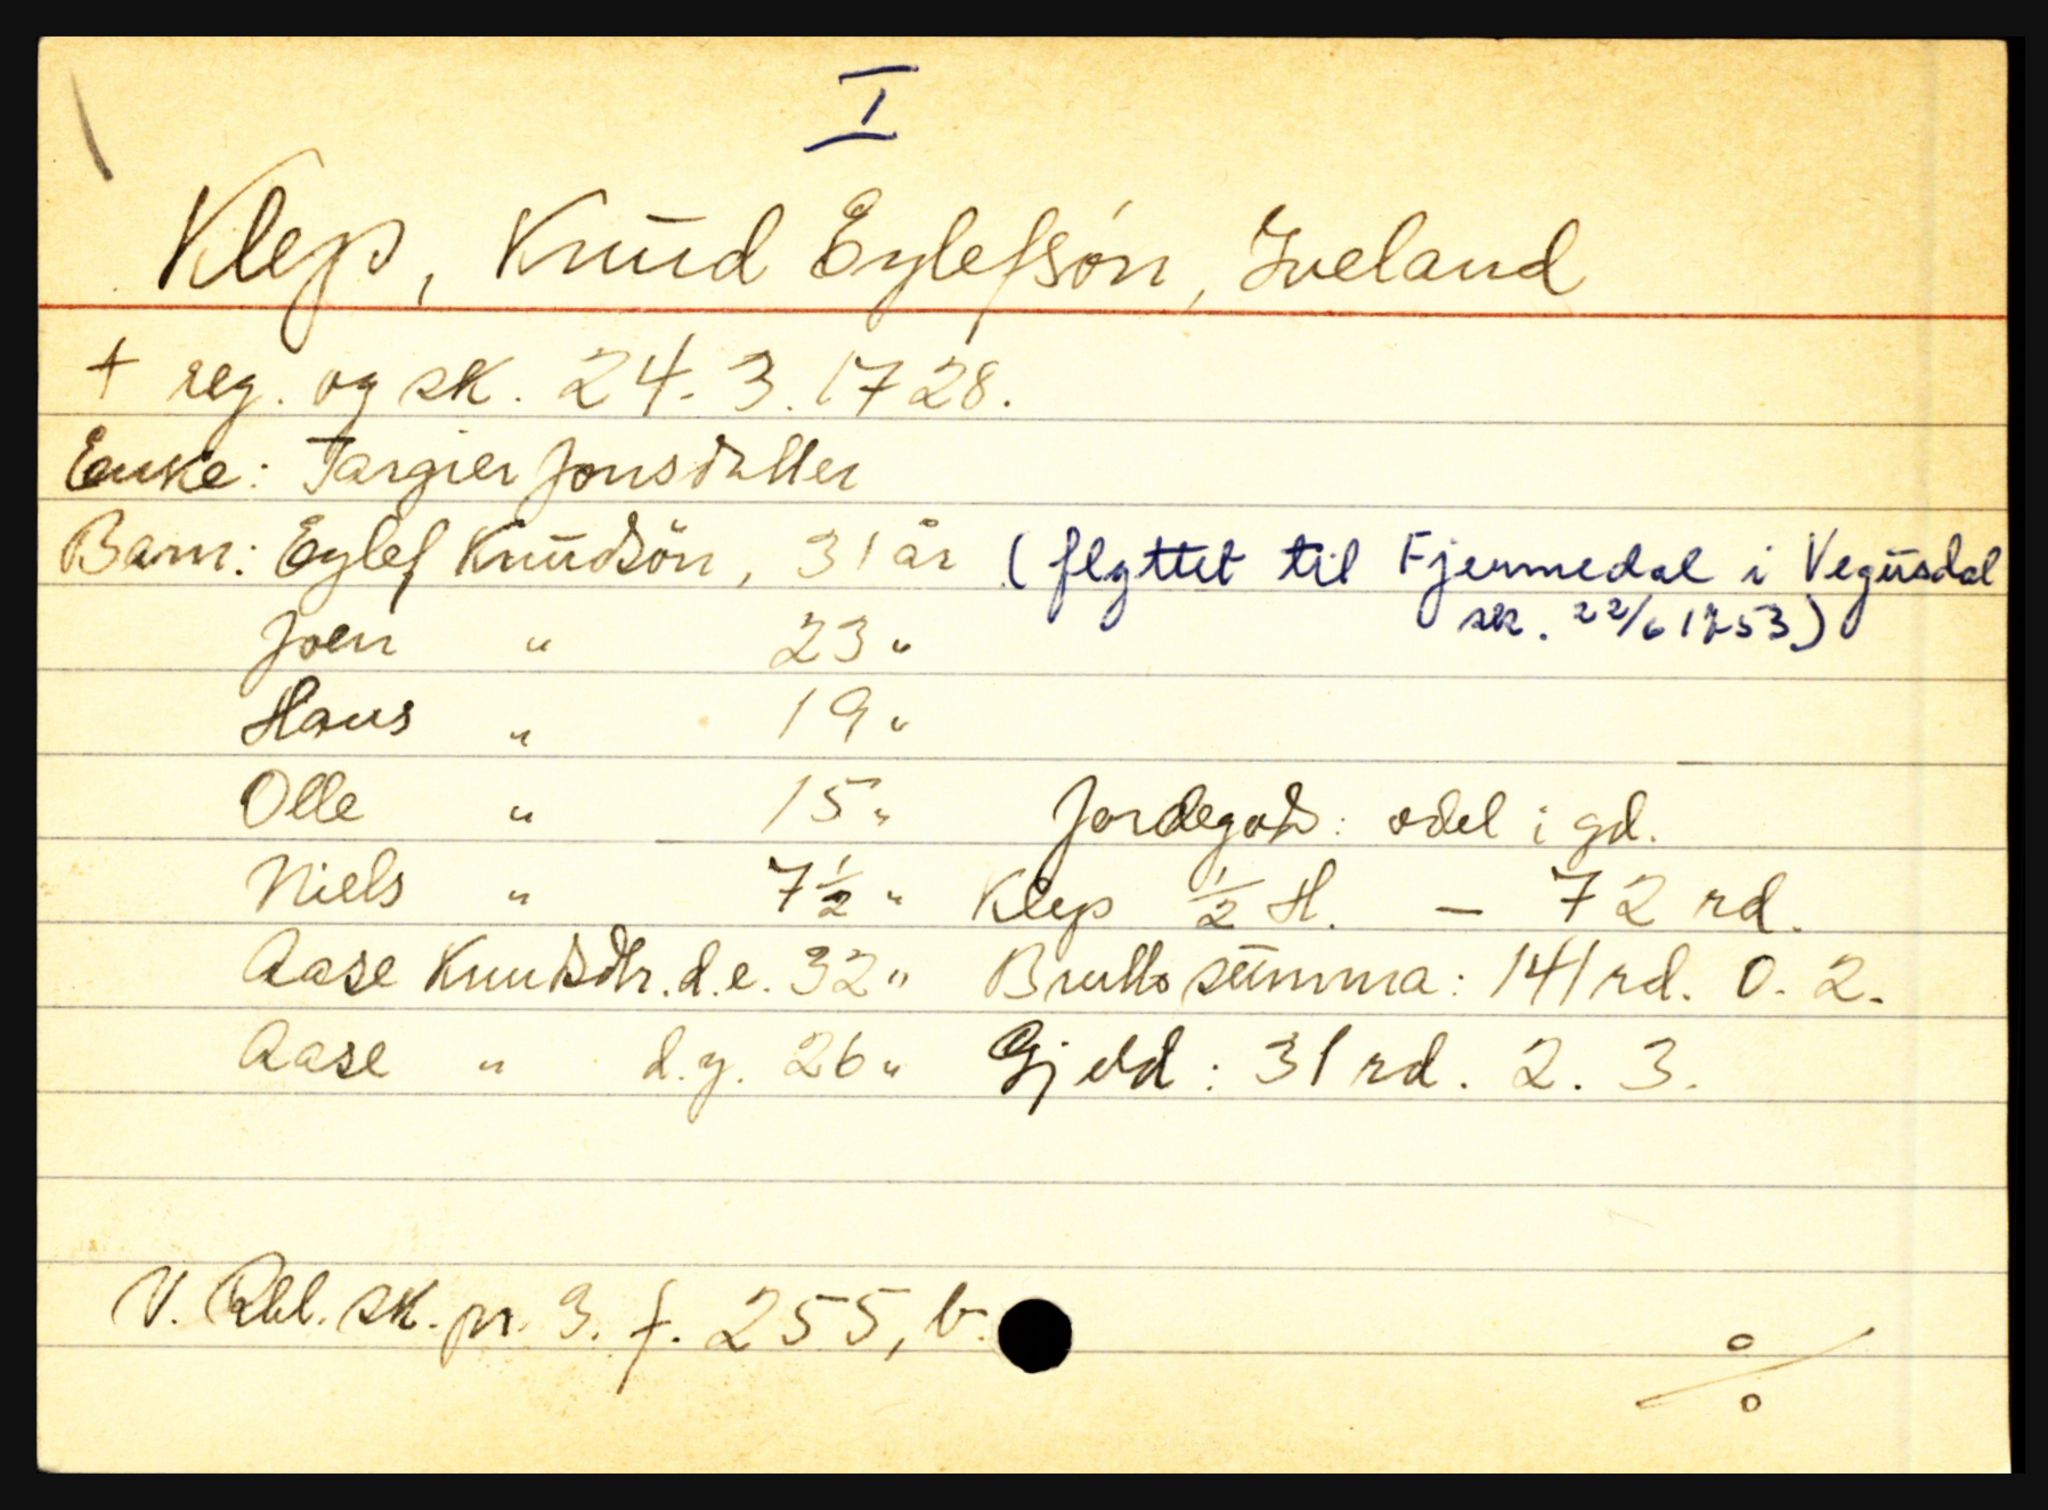 I
Klep, Knud Eylefsön, Iveland
+ reg. og sk. 24. 3. 1728.
Enke: Targier Jonsdatter
Barn: Eylef Knudsön, 31 år (flyttet til Fjermedal i Vegusdal
sk. 22/6 1753)
Joen " 23 "
Hans " 19 "
Olle " 15 " Jordegods: odel i gd.
Niels " 7 ½ " Klep ½ H. — 72 rd.
Aase Knudsdtr. d.e. 32 " Brutto summa: 141 rd. 0. 2.
Aase " d.y. 26 " Gjeld: 31 rd. 2. 3.
V. Rbl. sk. pr. 3. f. 255, b.
%